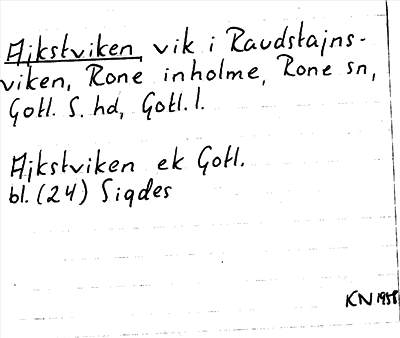 Ajkstviken, vik i Raudstajns-
viken, Rone inholme, Rone sn,
Gotl. S. hd, Gotl. l.
Ajkstviken ek Gotl.
bl. (24) Sigdes
KN 1958